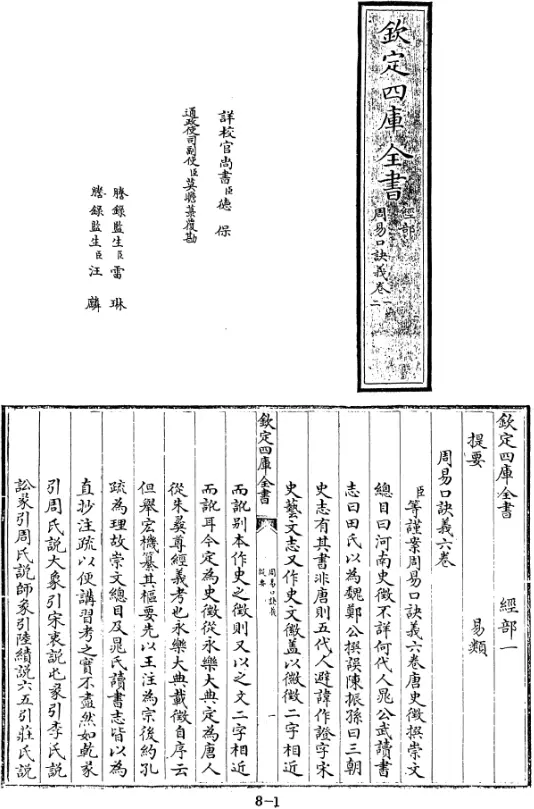 欽定四庫全書
經部
周易口訣義卷一
二
詳校官尚書臣德保
通政使司副使臣莫瞻菉覆勘
謄錄監生臣雷琳
謄錄監生臣汪麟
欽定四庫全書 經部一
提要 易類
周易口訣義六卷
臣等謹案周易口訣義六卷唐史徵撰崇文
總目曰河南史徵不詳何代人晁公武讀書
志曰田氏以為魏鄭公撰誤陳振孫曰三朝
史志有其書非唐則五代人避諱作證字宋
史藝文志又作史文徽蓋以徽徵二字相近
欽定四庫全書
周易口訣義
提要
一
而訛別本作史之徵則又以之文二字相近
而訛耳今定為史徵從永樂大典定為唐人
從朱彝尊經義考也永樂大典載徵自序云
但舉宏機纂其樞要先以王注為宗後約孔
疏為理故崇文總目及晁氏讀書志皆以為
直抄注疏以便講習考之實不盡然如乾彖
引周氏說大象引宋衷說屯彖引李氏說
訟彖引周氏說師彖引陸績說六五引莊氏說
8-1